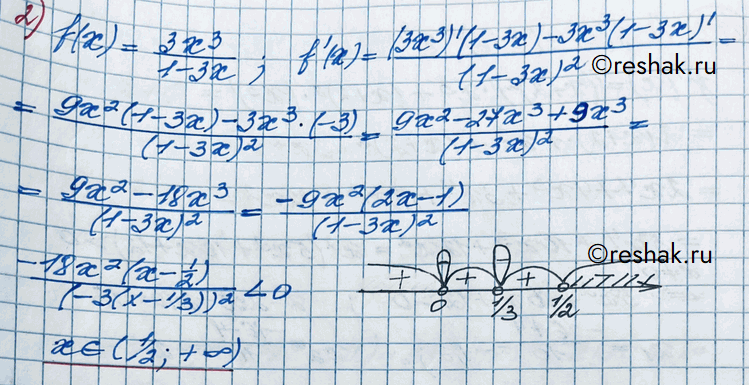 2) f(x) = 3x³/(1-3x) ; f'(x) = ((3x³)'(1-3x)-3x³(1-3x)')/(1-3x)² =
©reshak.ru
= (9x²(1-3x)-3x³·(-3))/(1-3x)² = (9x²-27x³+9x³)/(1-3x)² =
= (9x²-18x³)/(1-3x)² = (-9x²(2x-1))/(1-3x)²
©reshak.ru
(-18x²(x-1/2))/(-3(x-1/3))² <0
+ + +
0 1/3 1/2
x∈(1/2; +∞)